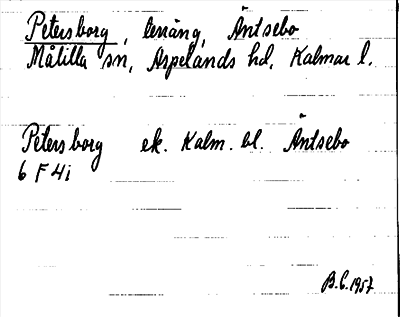 Petersborg, terräng, Äntsebo
Målilla sn, Aspelands hd, Kalmar l.
Petersborg ek. Kalm. bl. Äntsebo
6 F 4i
B.C. 1957